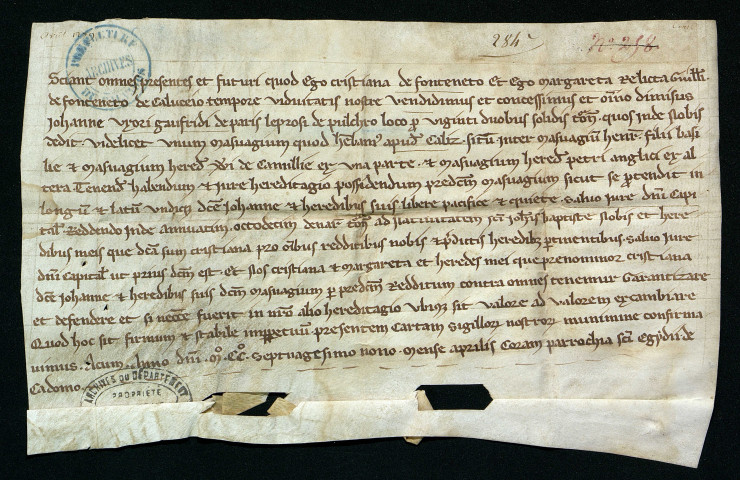 284
N° 258
PREFECTURE
ARCHIVES
Sciant omnes presentes et futuri quod Ego cristiana de fonteneto et Ego margareta Relicta Guill'
de fonteneto de Caluceio tempore viduitatis nostre vendidimus et concessimus et oĩno dimisim'
Johanne uxori Gaufridi de paris leprosi de pulchro loco p viginti duobus solidis tur. quos inde nobis
dedit. videlicet unum masuagium quod hẽbam' apud situm inter masuagium henr. filii basi
lie et masuagium hered. de ex una parte. et masuagium hered. petri anglici ex al
tera. Tenend. habendum et Jure hereditagio possidendum predictm masuagium sicut se protendit in
longum et latum undiq. dce Johanne et heredibus suis libere pacifice et quiete. salvo iure dni Capi
tal. Reddendo inde annuatim. octodecim denar. ad Nativitatem sci Joh'is baptiste Nobis et here
dibus meis que dicta sum cristiana pro omibus redditibus nobis et pdictis heredib; ptinentibus. salvo iure
dni Capital. ut prius dcm est. Et Nos cristiana et margareta et heredes mei que prenominor cristiana
dce Johanne et heredibus suis dcm masuagium p predcm Redditum contra omnes tenemur Garantizare
et defendere et si necce fuerit in nro alio hereditagio ubicuq; sit valore ad valorem excambiare
Quod hoc sit firmum et stabile impetuum presentem Cartam sigillorum nostrorum munimine confirma
vimus. Actum Anno dni. m°. CC°. Septuagesimo nono. mense aprilis Coram parrochia sci Egidii de
Cadomo.
ARCHIVES DU DÉPARTEMENT
PROPRIÉTÉ